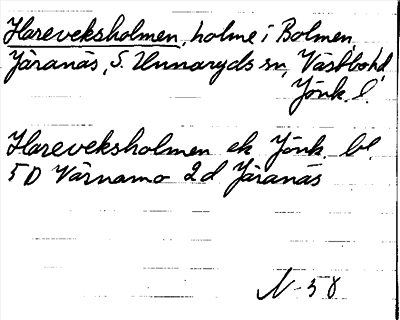 Hareveksholmen, holme i Bolmen,
Järanäs, S. Unnaryds sn, Västbo hd,
Jönk. l.
Hareveksholmen ek Jönk. bl.
5D Värnamo 2d Järanäs
N-58